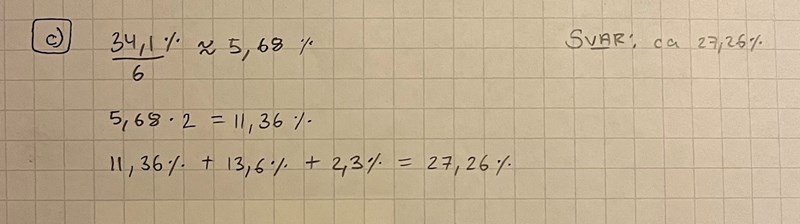 c) 34,1% / 6 ≈ 5,68 %
SVAR: ca 27,26%
5,68 · 2 = 11,36 %
11,36% + 13,6% + 2,3% = 27,26%